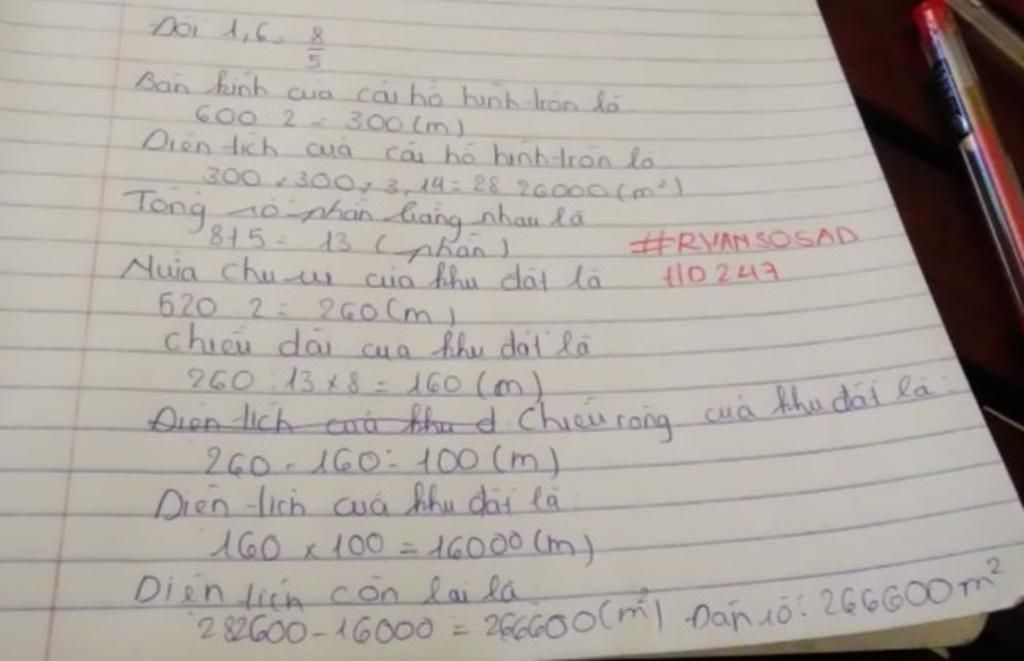 Đổi 1,6 = 8/5
Bán kính của cái hồ hình tròn là
600 : 2 = 300 (m)
Diện tích của cái hồ hình tròn là
300 x 300 x 3,14 = 28 26000 (m²)
Tổng số phần bằng nhau là
8+5 = 13 (phần)
#RYANSOSAD
110247
Nửa chu vi của khu đất là
520 : 2 = 260 (m)
Chiều dài của khu đất là
260 : 13 x 8 = 160 (m)
Diện tích của khu đ Chiều rộng của khu đất là:
260 - 160 = 100 (m)
Diện tích của khu đất là
160 x 100 = 16000 (m)
Diện tích còn lại là
282600 - 16000 = 266600 (m²) Đáp số: 266600 m²